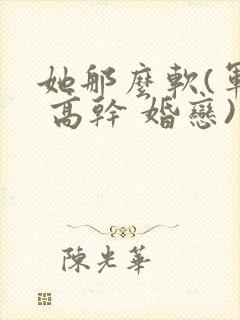 她那麼軟(軍
高幹 婚戀)
陳光華